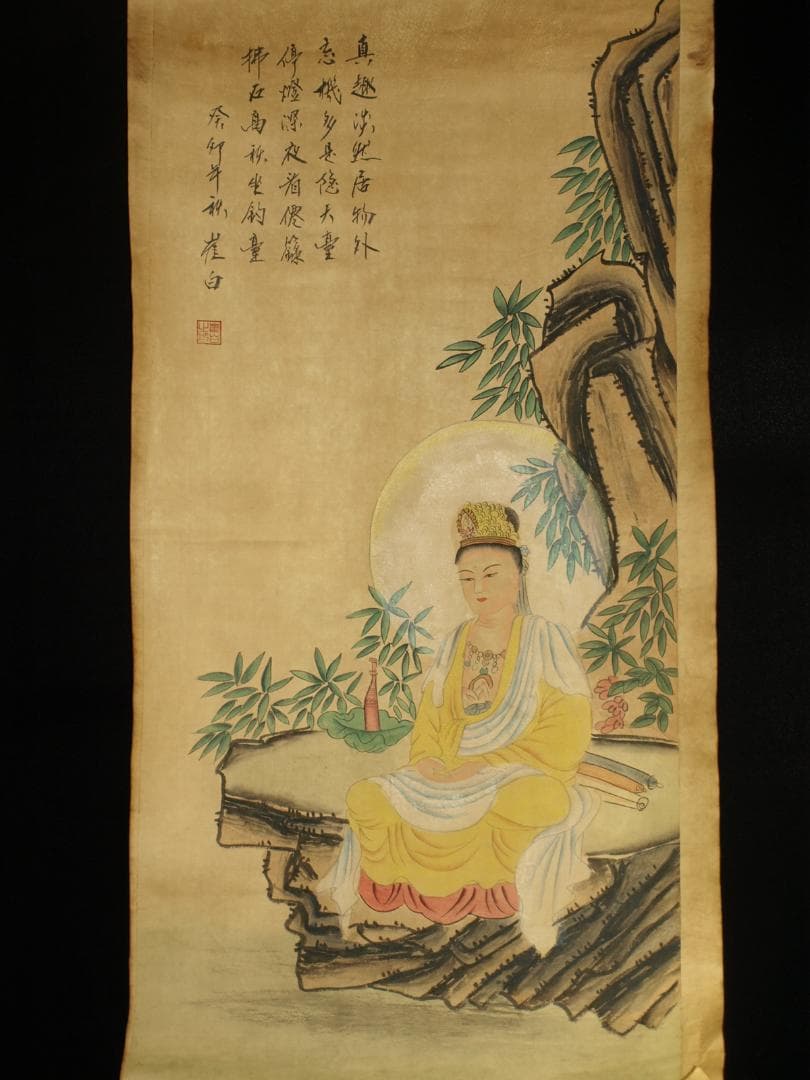 真趣淡然居物外
忘機多是隐天臺
停燈深夜看僊籙
拂石高秋坐釣臺
癸卯年秋 崔白